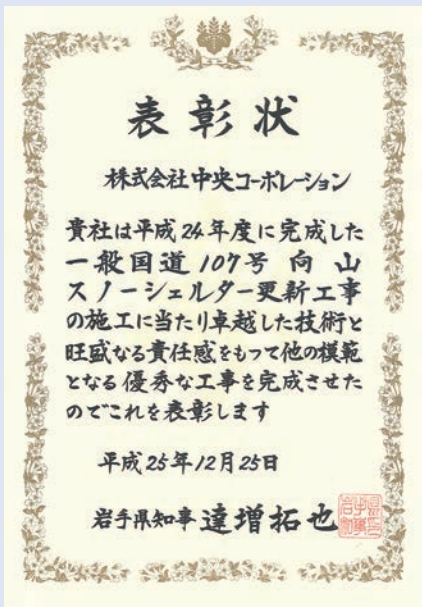 表彰状
株式会社中央コーポレーション
貴社は平成24年度に完成した
一般国道107号向山
スノーシェルター更新工事
の施工に当たり卓越した技術と
旺盛なる責任感をもって他の模範
となる優秀な工事を完成させた
のでこれを表彰します
平成25年12月25日
岩手県知事 達増拓也